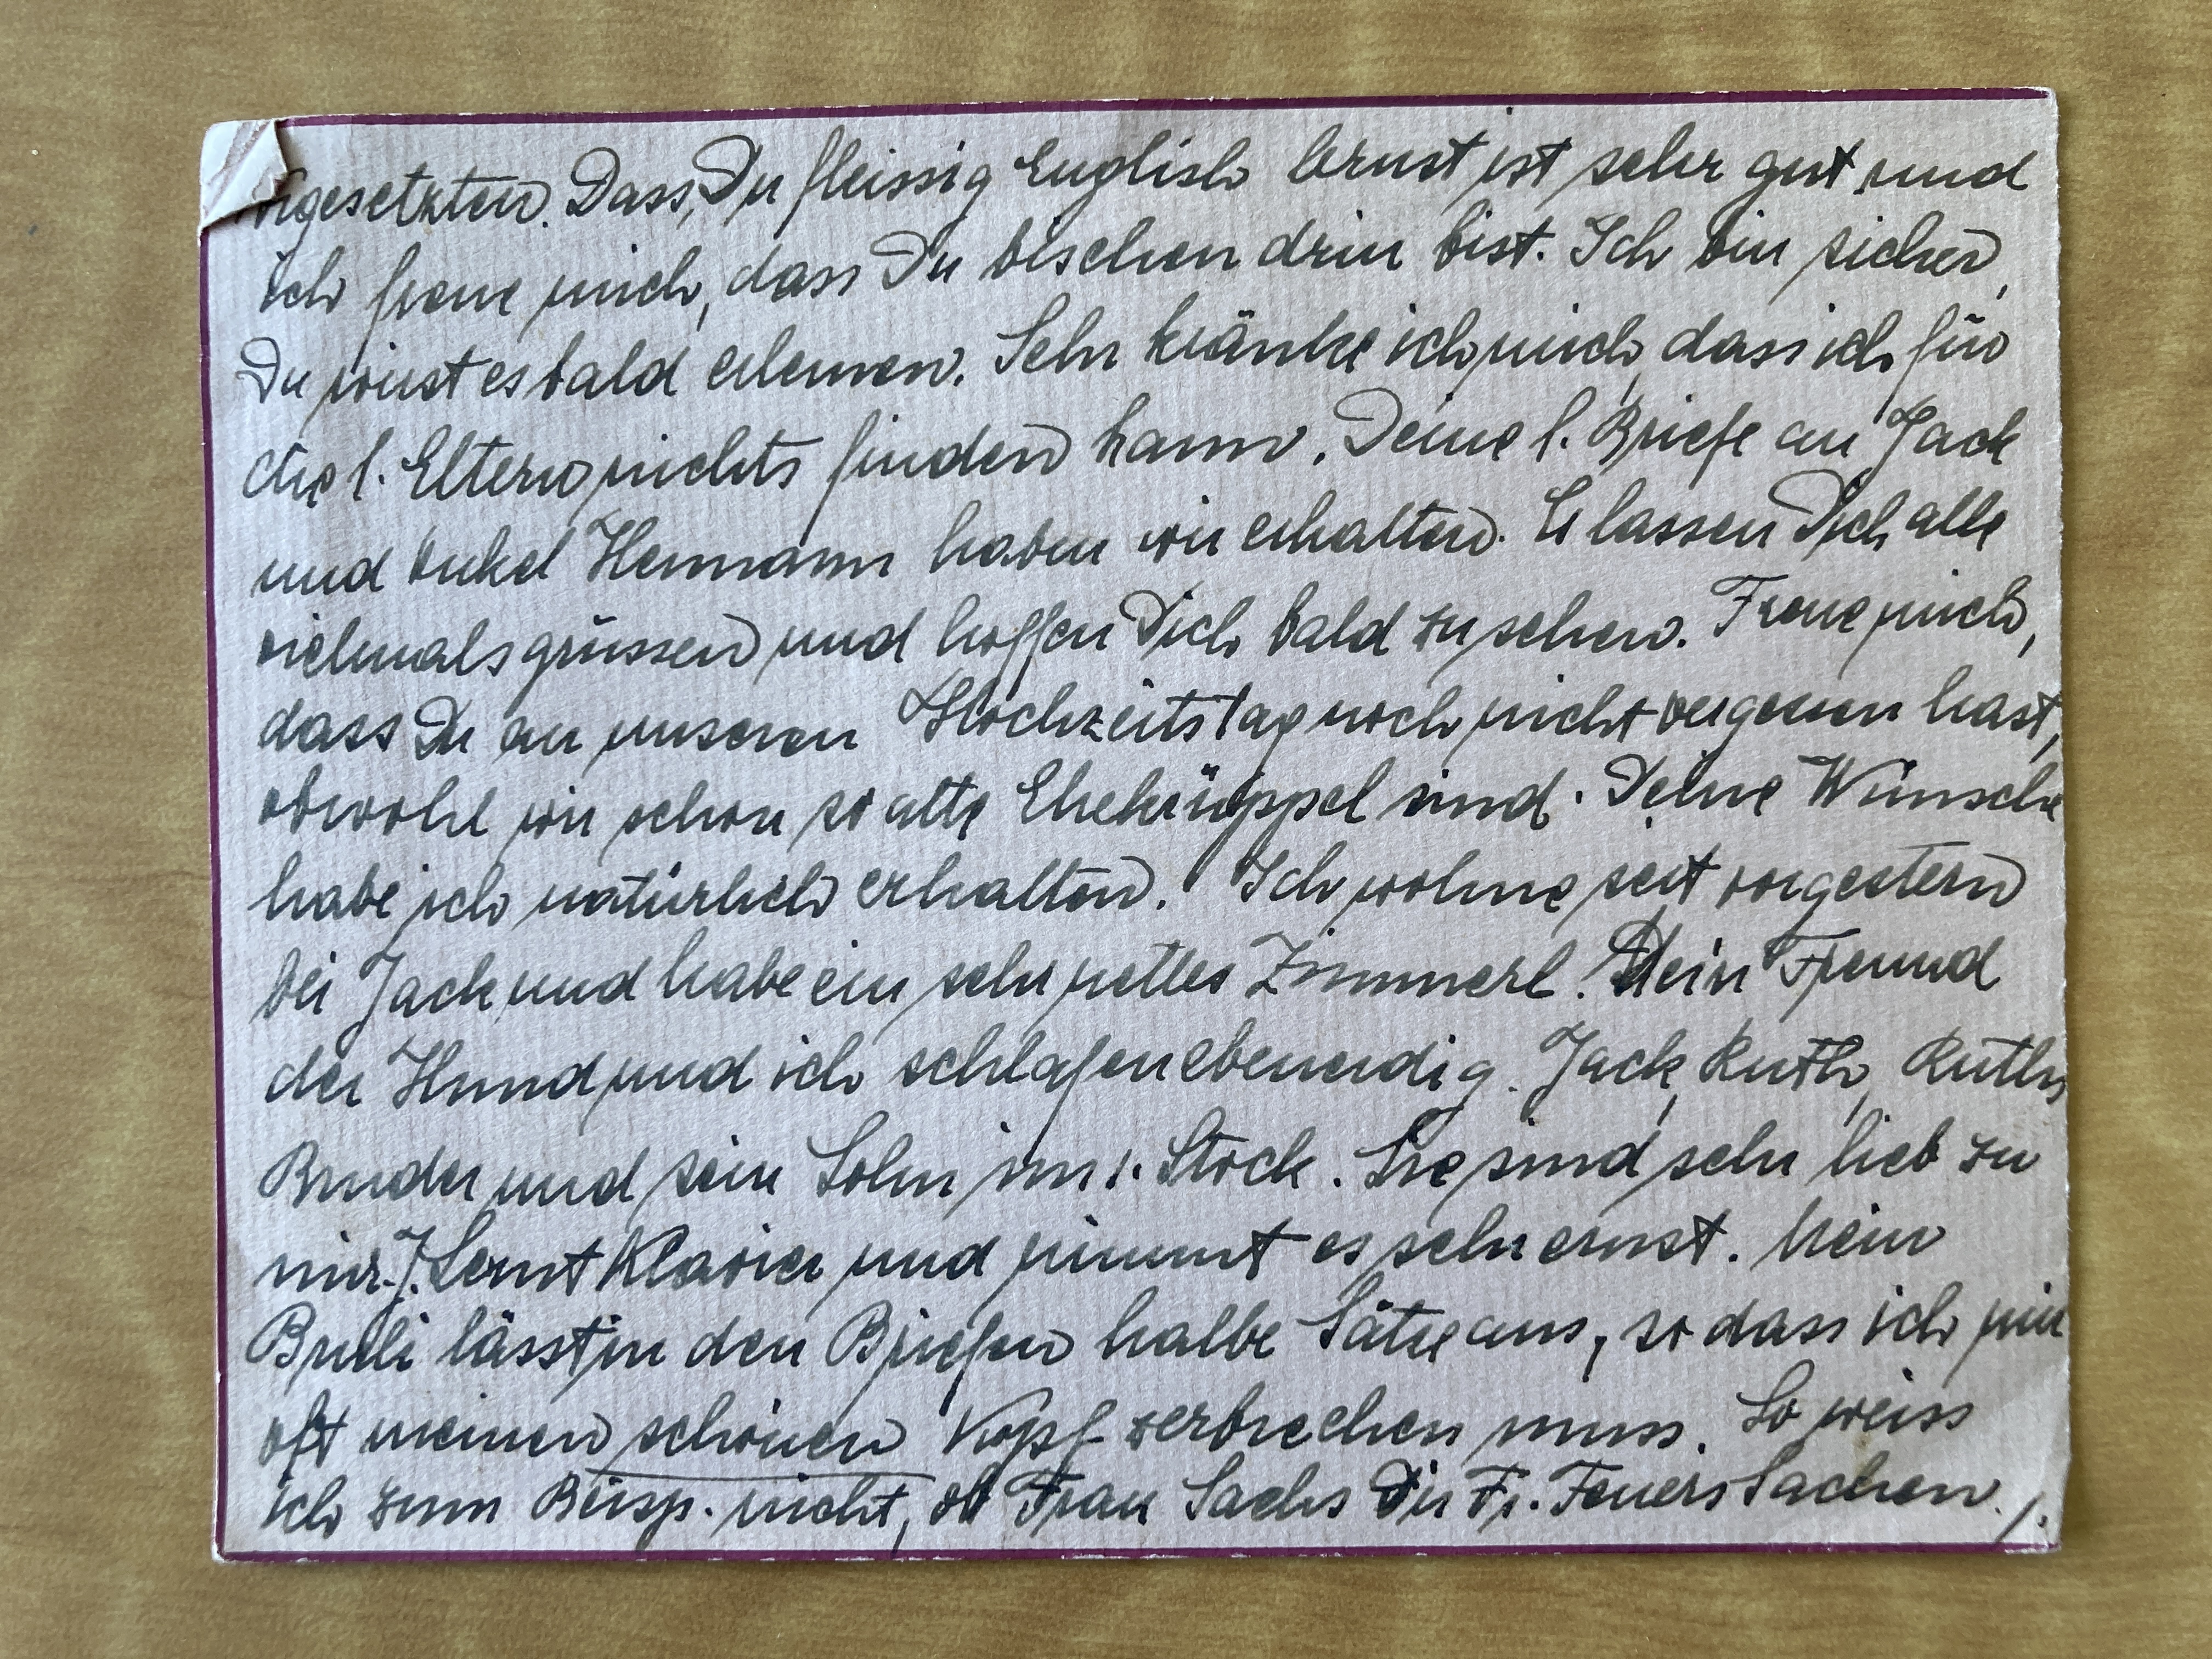 vorgesetzten. Dass Du fleissig Englisch lernst ist sehr gut und
ich freue mich, dass Du bischen drin bist. Ich bin sicher,
Du wirst es bald erlernen. Sehr kränke ich mich, dass ich für
die l. Eltern nichts finden kann. Deine l. Briefe an Jack
und Onkel Hermann haben wir erhalten. Es lassen Dich alle
vielmals grüssen und hoffen Dich bald zu sehen. Freue mich,
dass Du an unseren Hochzeitstag noch nicht vergessen hast,
obwohl wir schon so alte Ehekrüppel sind. Deine Wünsche
habe ich natürlich erhalten. Ich wohne seit vorgestern
bei Jack und habe ein sehr nettes Zimmerl. Dein Freund
der Hund und ich schlafen ebenerdig. Jack, Ruth, Ruths
Bruder und sein Sohn im 1. Stock. Sie sind sehr lieb zu
mir. J. Lernt Klavier und nimmt es sehr ernst. Mein
Bruli lässt in den Briefen halbe Sätze aus, so dass ich mir
oft meinen schönen Kopf zerbrechen muss. So weiss
ich zum Beisp. nicht, ob Frau Sachs Dir Fr. Feuers Sachen ./.